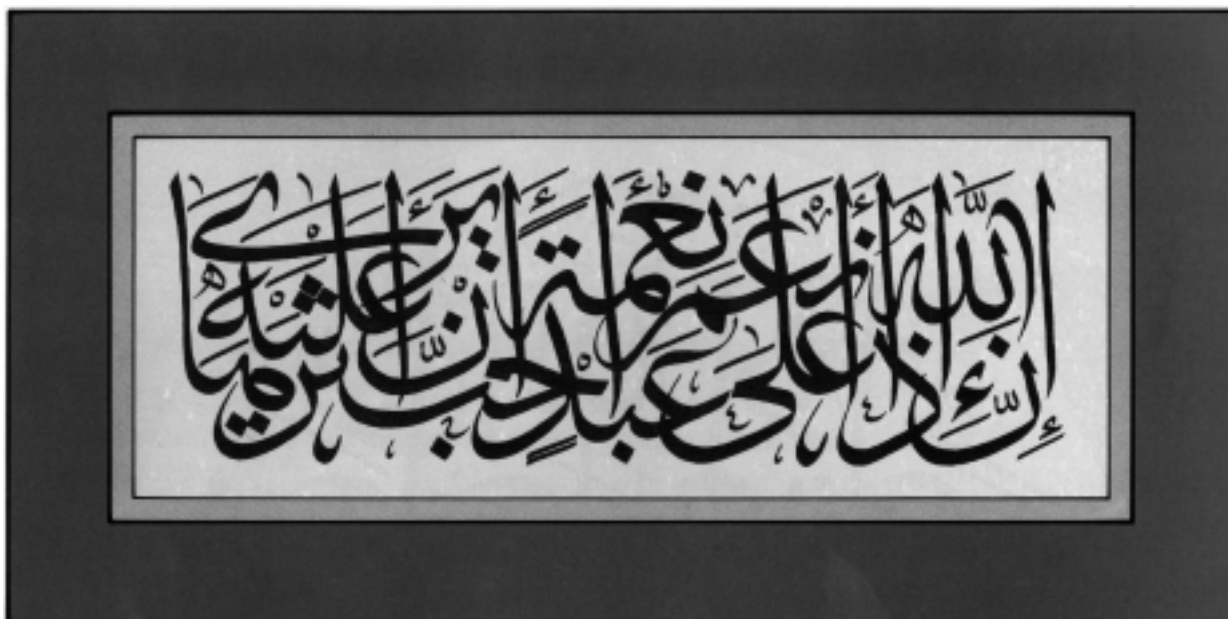 إِنَّ اللَّهَ إِذَا أَنْعَمَ عَلَى عَبْدٍ نِعْمَةً أَحَبَّ أَنْ يَرَى أَثَرَهَا عَلَيْهِ